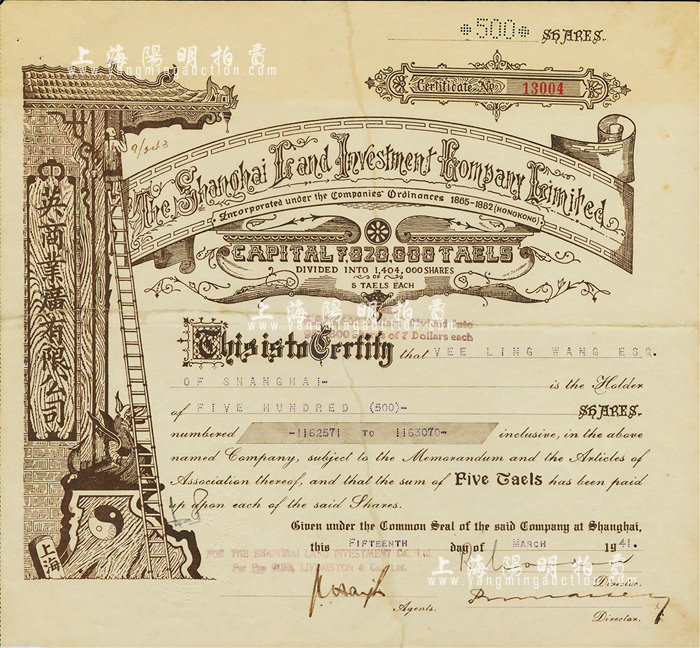 *500* SHARES.
上海陽明拍賣
www.yangmingauction.com
Certificate No 13004
The Shanghai Land Investment Company Limited.
Incorporated under the Companies' Ordinances 1865-1882 (HONGKONG)
CAPITAL 7,020,000 TAELS
DIVIDED INTO 1,404,000 SHARES
OF
5 TAELS EACH
英商業廣有限公司
上海陽明拍賣
www.yangmingauction.com
Shares of 7 Dollars each
This is to Certify that VEE LING WANG ESQ.
OF SHANGHAI- is the Holder
of FIVE HUNDRED (500)- SHARES.
numbered -1162571 TO 1163070- inclusive, in the above
named Company, subject to the Memorandum and the Articles of
Association thereof, and that the sum of Five Taels has been paid
up upon each of the said Shares.
Given under the Common Seal of the said Company at Shanghai,
this FIFTEENTH day of MARCH 1941.
FOR THE SHANGHAI LAND INVESTMENT Co. Ltd.
Per Pro GIBB, LIVINGSTON & Co., Ltd.
上海陽明拍賣
www.yangmingauction.com
Director.
Agents.
Director.
上海